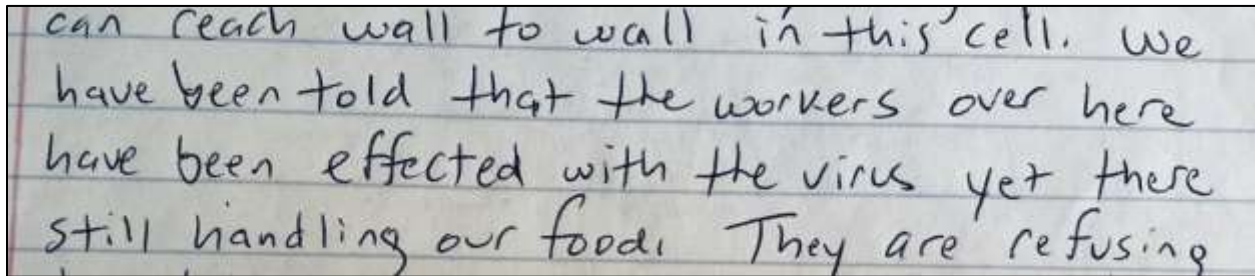 can reach wall to wall in this cell. We
have been told that the workers over here
have been effected with the virus yet there
still handling our food. They are refusing